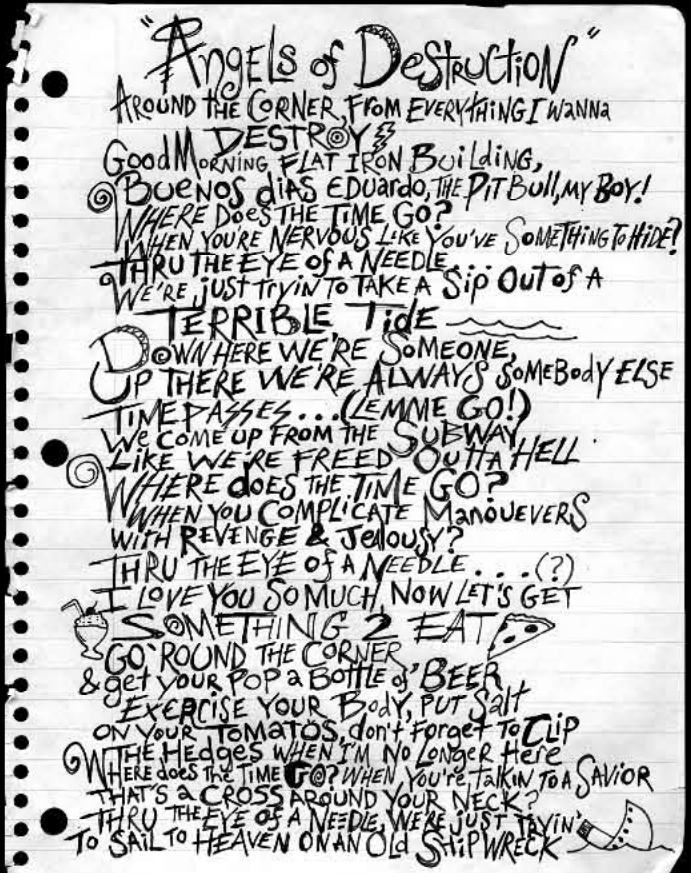 "Angels of Destruction"
Around the Corner, from everything I wanna
DESTROY
Good Morning Flat Iron Building,
Buenos dias Eduardo, the Pit Bull, my Boy!
Where Does the Time Go?
When you're nervous like you've something to hide?
Thru the eye of a needle
We're just tryin to take a sip out of a
Terrible Tide
Down here we're someone,
Up there we're always somebody else
Time passes...(Lemme go!)
We come up from the subway
Like we're freed outta Hell
Where does the time go?
When you complicate manouevers
with revenge & jellousy?
Thru the eye of a needle....(?)
I love you so much, now let's get
Something 2 eat
Go 'round the corner
& get your pop a bottle of beer
Exercise your body, put salt
on your tomatos, don't forget to clip
The hedges when I'm no longer here
Where does the time go? When you're talkin to a savior
That's a cross around your neck?
Thru the eye of a needle, we're just tryin'
To sail to Heaven on an old shipwreck